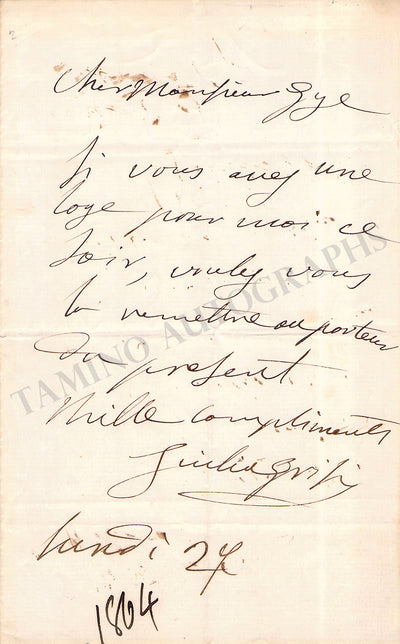 Cher Monsieur Gye
Si vous avez une
loge pour moi ce
soir, voulez vous
la remettre au porteur
du présent
Mille Compliments
Giulia Grisi
lundi 27
1864
TAMINO AUTOGRAPHS